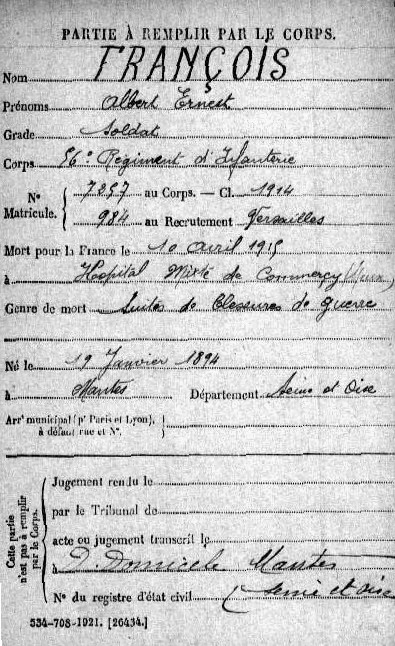 PARTIE À REMPLIR PAR LE CORPS.
Nom FRANÇOIS
Prénoms Albert Ernest
Grade Soldat
Corps 56e Régiment d'Infanterie
N° Matricule. { 7257 au Corps. — Cl. 1914
984 au Recrutement Versailles
Mort pour la France le 10 avril 1915
à Hopital Mixte de Commercy (Meuse)
Genre de mort Suites de Blessures de guerre
Né le 19 Janvier 1894
à Mantes Département Seine et Oise
Arrt municipal (pr Paris et Lyon), à défaut rue et N°. {
Cette partie n'est pas à remplir par le Corps. {
Jugement rendu le
par le Tribunal de
acte ou jugement transcrit le
à D Domicile Mantes
N° du registre d'état civil (Seine et Oise
534-708-1921. [26434.]